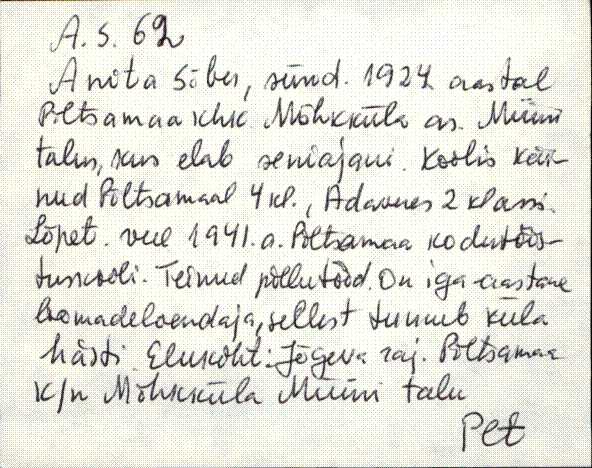 A. S. 62
Anita Sõber, sünd. 1924 aastal
Põltsamaa khk. Mõhkküla as. Müüri
talus, kus elab seniajani. Koolis käi-
nud Põltsamaal 4 kl., Adaveres 2 klassi.
Lõpet. veel 1941. a. Põltsamaa kodutöös-
tuskooli. Teinud põllutööd. On iga-aastane
loomadeloendaja, sellest tunneb küla
hästi. Elukoht: Jõgeva raj. Põltsamaa
k/n Mõhkküla Müüri talu
Pet